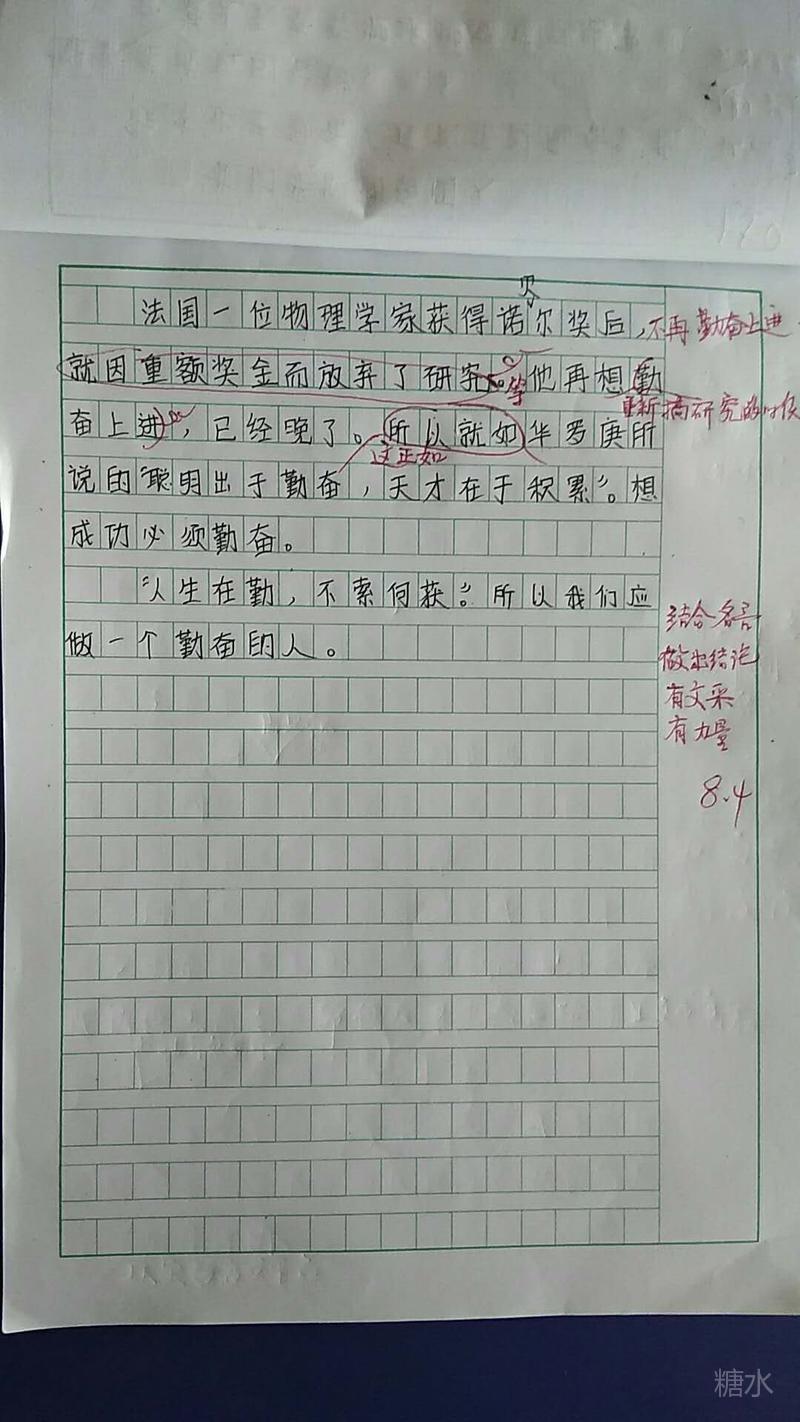 法国一位物理学家获得诺贝尔奖后,不再勤奋上进.
就因重额奖金而放弃了研究。等他再想勤
重新搞研究的时候
奋上进,已经晚了。所以就如华罗庚所
这正如
说的“聪明出于勤奋,天才在于积累”。想
成功必须勤奋。
“人生在勤,不索何获”。所以我们应
做一个勤奋的人。
结合名言
做出结论
有文采
有力量
8.4
糖水